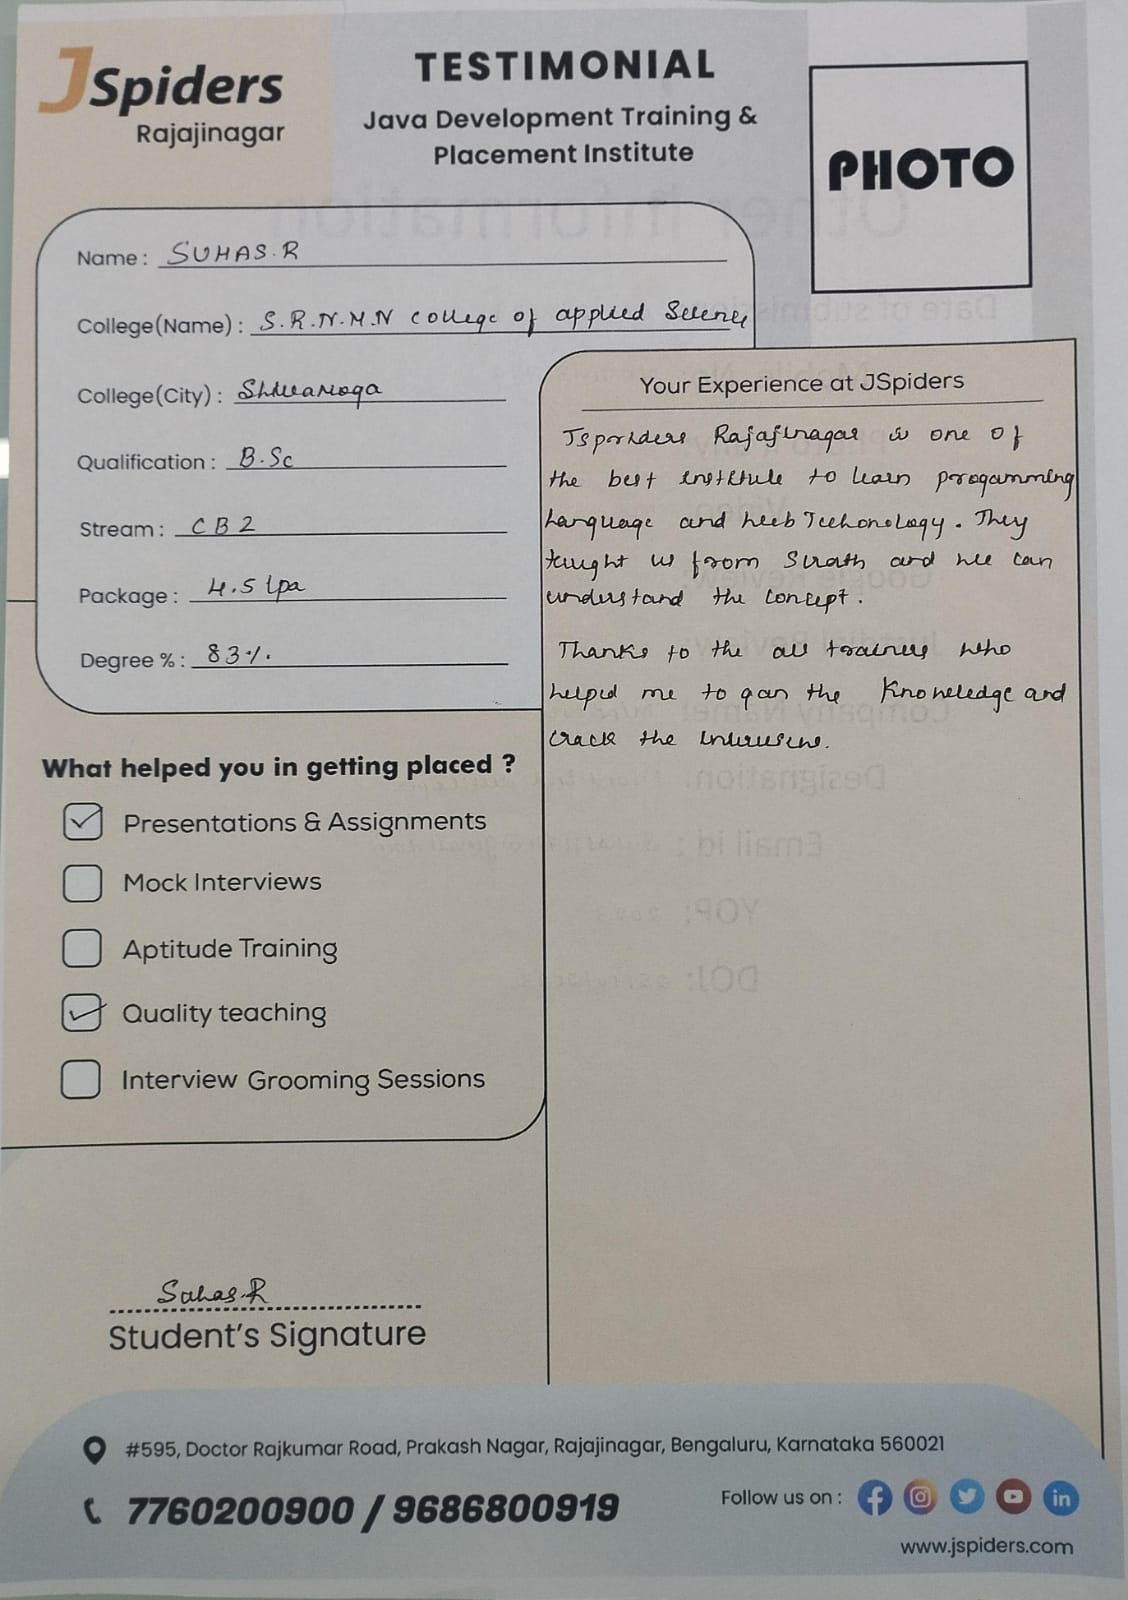 JSpiders
Rajajinagar
TESTIMONIAL
Java Development Training &
Placement Institute
PHOTO
Name : SUHAS.R
College(Name) : S.R.N.M.N College of applied Science
College(City) : Shivamoga
Qualification : B.Sc
Stream : CBZ
Package : 4.5 lpa
Degree % : 83%.
Your Experience at JSpiders
Jspiders Rajajinagar is one of
the best institute to learn progamming
Language and web Techonology. They
taught us from Scrath and we can
understand the concept.
Thanks to the all trainers who
helped me to gan the Knoweledge and
crack the interview.
What helped you in getting placed ?
Presentations & Assignments
Mock Interviews
Aptitude Training
Quality teaching
Interview Grooming Sessions
Suhas.R
Student's Signature
#595, Doctor Rajkumar Road, Prakash Nagar, Rajajinagar, Bengaluru, Karnataka 560021
7760200900 / 9686800919
Follow us on :
www.jspiders.com